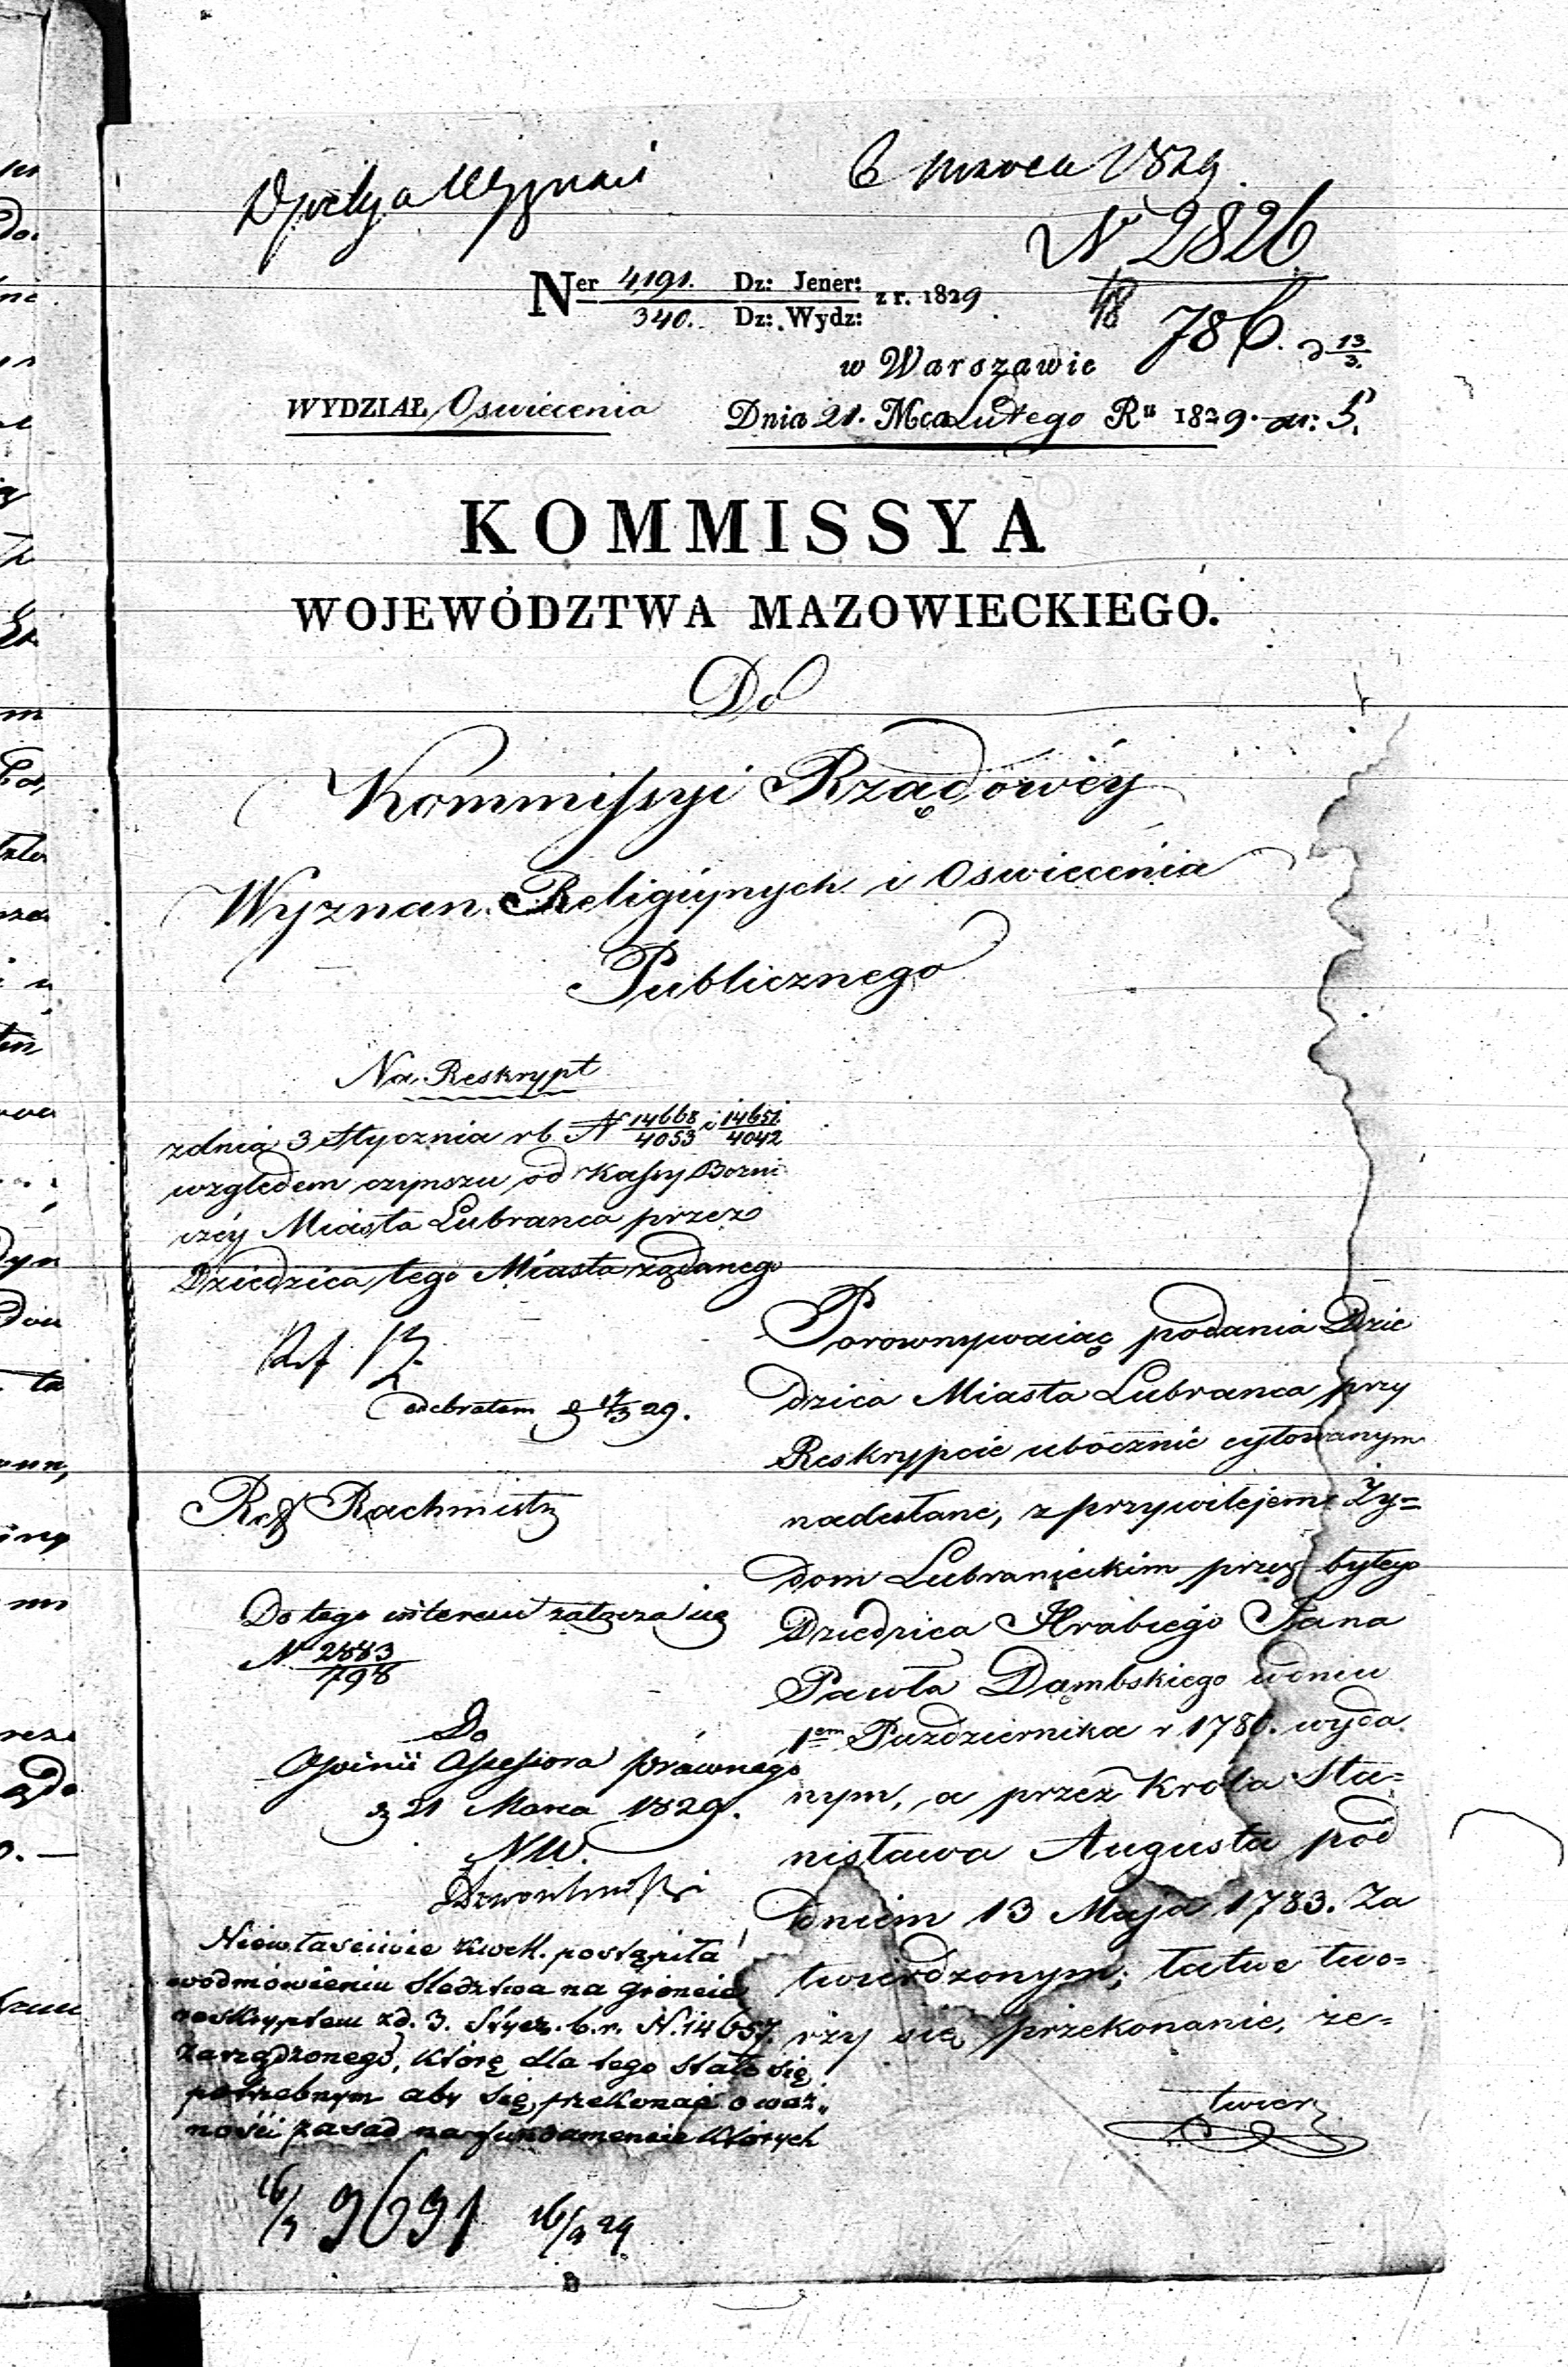 6 marca 1829.
N 2826
786. d 13/3.
Ner 4191. Dz: Jener: z r. 1829.
340. Dz: Wydz:
w Warszawie
WYDZIAŁ Oswiecenia
Dnia 21. Mca Lutego Ru 1829.
KOMMISSYA
WOJEWÓDZTWA MAZOWIECKIEGO.
Do
Kommissyi Rządowéy
Wyznan Religiynych i Oswiecenia
Publicznego
Na Reskrypt
z dnia 3 Stycznia rb N 14668/4053 i 14657/4042
względem czynszu od Kassy Bożni
czéy Miasta Lubranca przez
Dziedzica tego Miasta żądanego
odebrałem 29.
Ref Rachmistrz
Do tego interesu załącza się
N 2883
798
Do
Opinii Assessora prawnego
d 21 Marca 1829.
Niewłasciwie Kwoll. postąpiła
w odmówieniu sledztwa na gróncie
reskryptem z d. 3. Stycz. b. r. N. 14657.
zarządzonego, które dla tego stało się
potrzebnym aby się przekonać o waż„
nosci zasad na fundamencie których
9691
Porownywaiąc podania Dzie
dzica Miasta Lubranca przy
Reskrypcie ubocznie cytowanym
nadesłane, z przywilejem Ży=
dom Lubranieckim przez byłego
Dziedzica Hrabiego Jana
Pawła Dąmbskiego w dniu
1em Pazdziernika r 1780. wyda
nym, a przez Krola Sta=
nisława Augusta pod
dniem 13 Maja 1783. Za
twierdzonym, łatwe two=
rzy się przekonanie, że=
twier